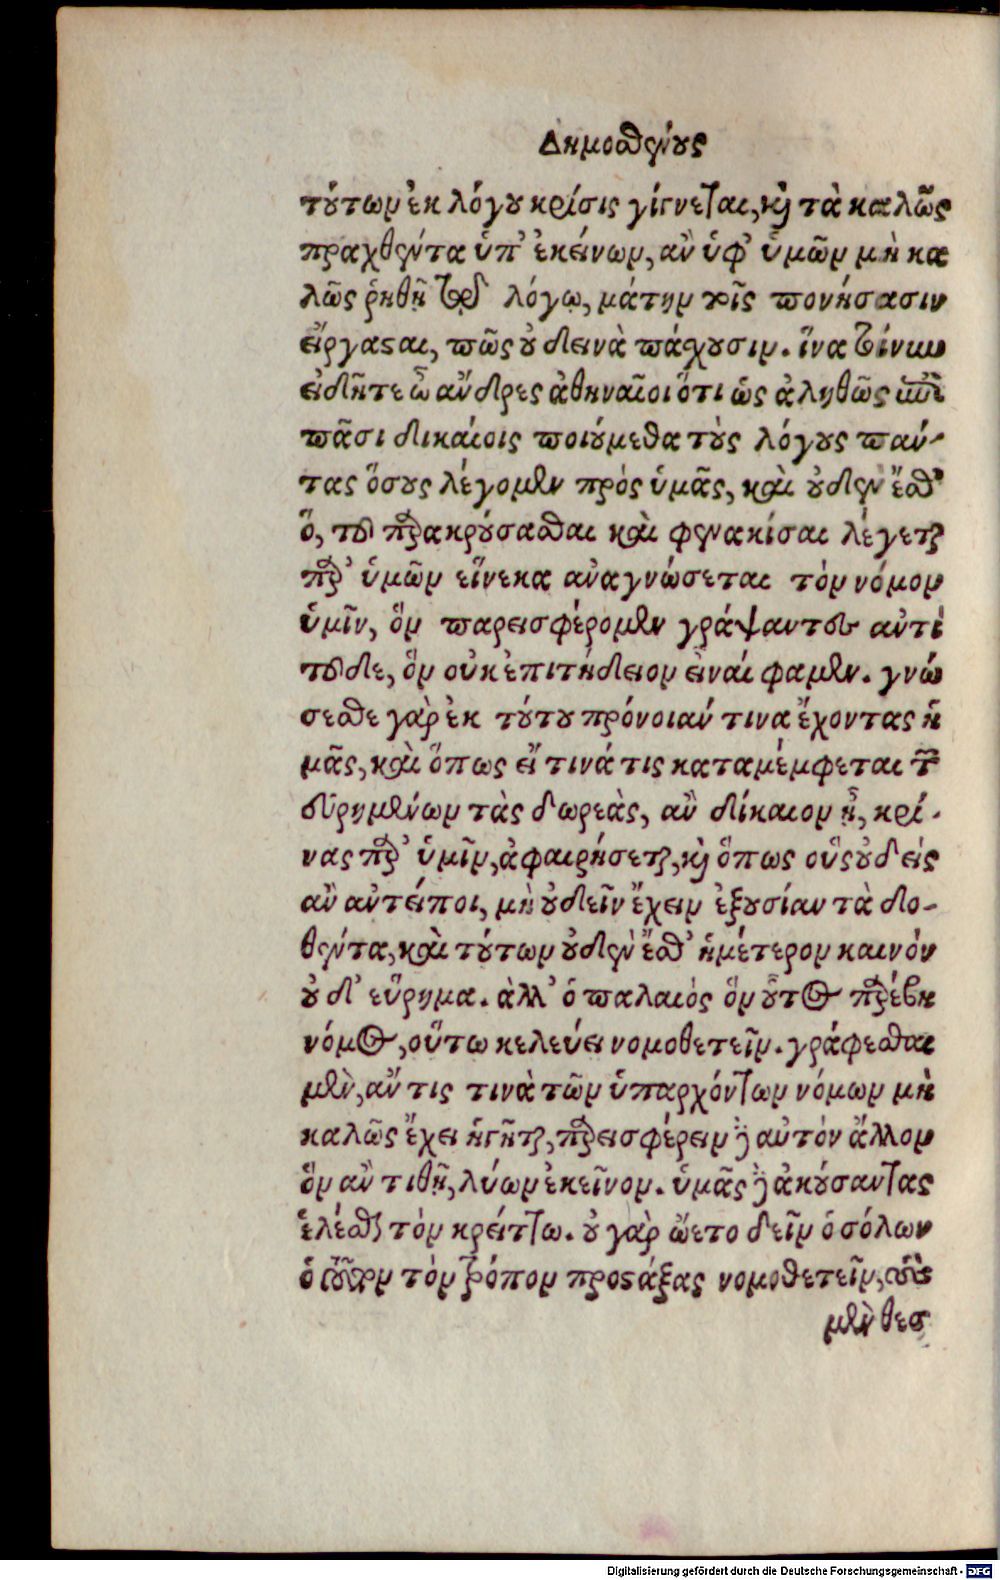 Δημοσθένους
τούτων ἐκ λόγου κρίσις γίγνεται, καὶ τὰ καλῶς
πραχθέντα ὑπ' ἐκείνων, ἂν ὑφ' ὑμῶν μὴ κα
λῶς ῥηθῇ τῷδε λόγῳ, μάτην τοῖς πονήσασιν
εἴργασται, πῶς οὐ δεινὰ πάσχουσιν. ἵνα τοίνυν
εἰδῆτε ὦ ἄνδρες ἀθηναῖοι ὅτι ὡς ἀληθῶς ἐπὶ
πᾶσι δικαίοις ποιούμεθα τοὺς λόγους πάν-
τας ὅσους λέγομεν πρὸς ὑμᾶς, καὶ οὐδὲν ἔσθ'
ὅ, τοῦ παρακρούσασθαι καὶ φενακίσαι λέγεται
παρ' ὑμῶν εἵνεκα ἀναγνώσεται τὸν νόμον
ὑμῖν, ὃν παρεισφέρομεν γράψαντες ἀντὶ
τοῦδε, ὃν οὐκ ἐπιτήδειον εἶναί φαμεν. γνώ
σεσθε γὰρ ἐκ τούτου πρόνοιάν τινα ἔχοντας ἡ
μᾶς, καὶ ὅπως εἴ τινά τις καταμέμφεται τῶν
εὑρημένων τὰς δωρεὰς, ἂν δίκαιον ᾖ, κρί-
νας παρ' ὑμῖν, ἀφαιρήσεται, καὶ ὅπως οὓς οὐδείς
ἂν ἀντείποι, μὴ οὐδεῖν ἔχειν ἐξουσίαν τὰ δο-
θέντα, καὶ τούτων οὐδὲν ἔσθ' ἡμέτερον καινὸν
οὐδ' εὕρημα. ἀλλ' ὁ παλαιός ὃν οὗτος παρέβη
νόμος, οὕτω κελεύει νομοθετεῖν. γράφεσθαι
μὲν, ἄν τις τινὰ τῶν ὑπαρχόντων νόμων μὴ
καλῶς ἔχει ἡγῆται, παρεισφέρειν δ' αὐτὸν ἄλλον
ὃν ἂν τιθῇ, λύων ἐκεῖνον. ὑμᾶς δ' ἀκούσαντας
ἑλέσθαι τὸν κρείττω. οὐ γὰρ ᾤετο δεῖν ὁ σόλων
ὁ τοῦτον τὸν τρόπον προστάξας νομοθετεῖν, τοὺς
μὲν θεσ
Digitalisierung gefördert durch die Deutsche Forschungsgemeinschaft - DFG